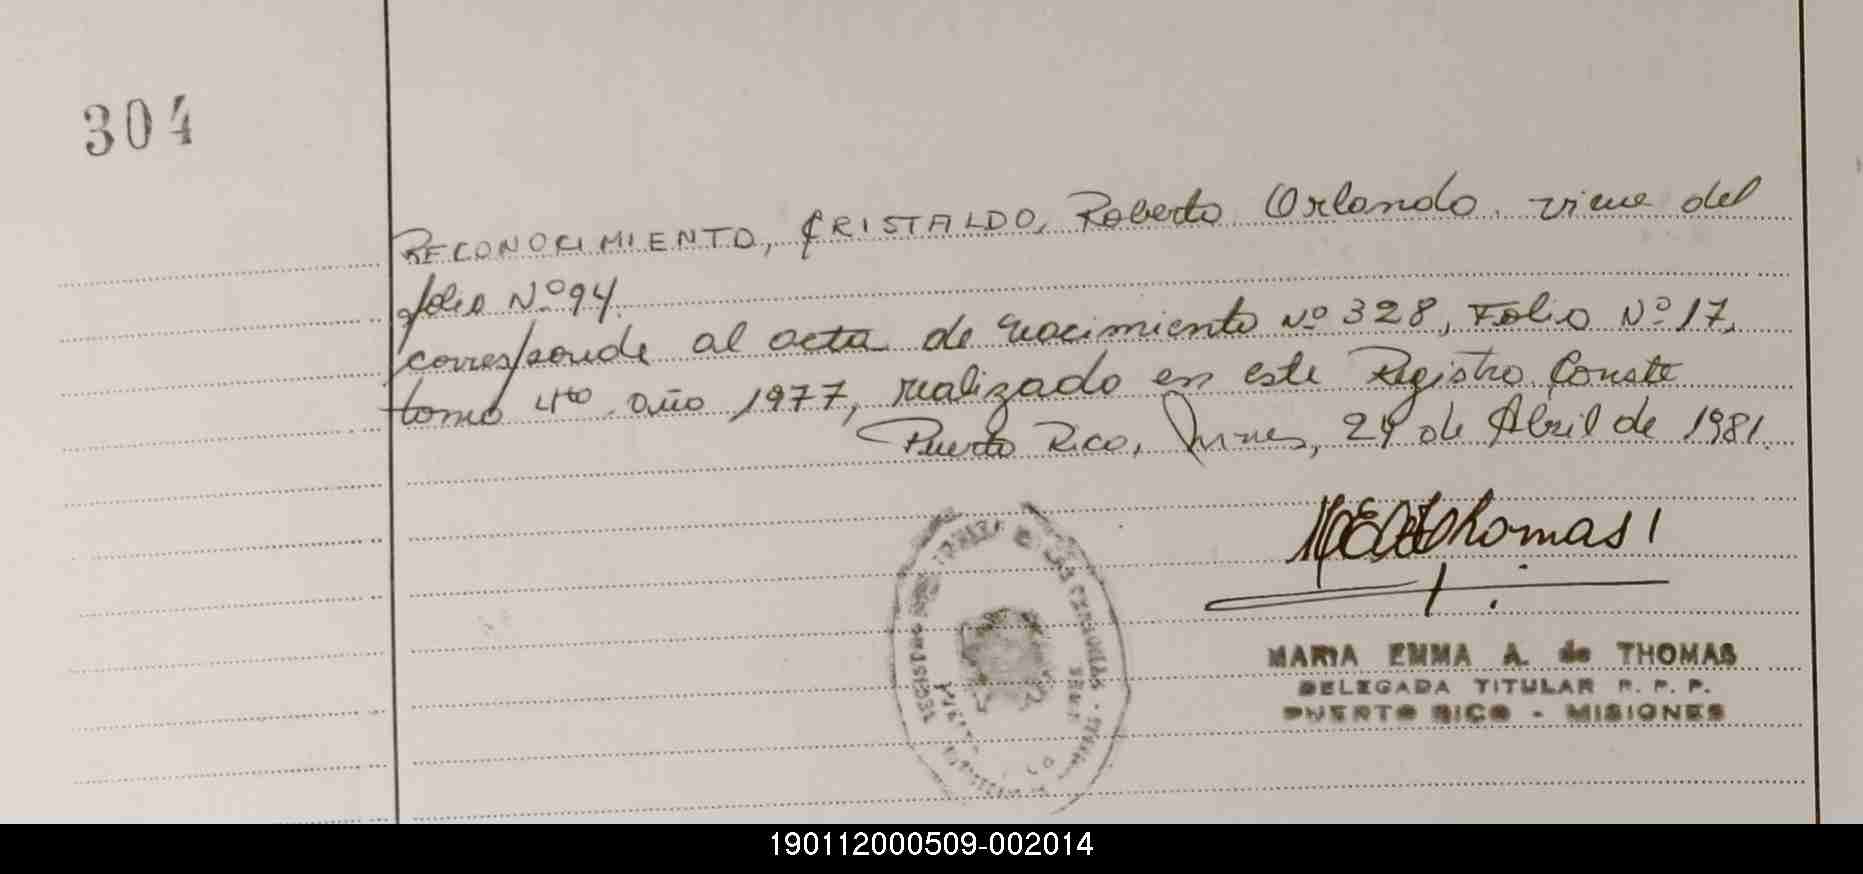 304
RECONOCIMIENTO, CRISTALDO, Roberto Orlando. viene del
folio Nº 94.
corresponde al acta de nacimiento Nº 328, Folio Nº 17,
tomo 4to año 1977, realizado en este Registro. Conste
Puerto Rico, Mnes, 24 de Abril de 1981.
Thomas
MARIA EMMA A. de THOMAS
DELEGADA TITULAR R. P. P.
PUERTO RICO - MISIONES
REGISTRO DE LAS PERSONAS
190112000509-002014